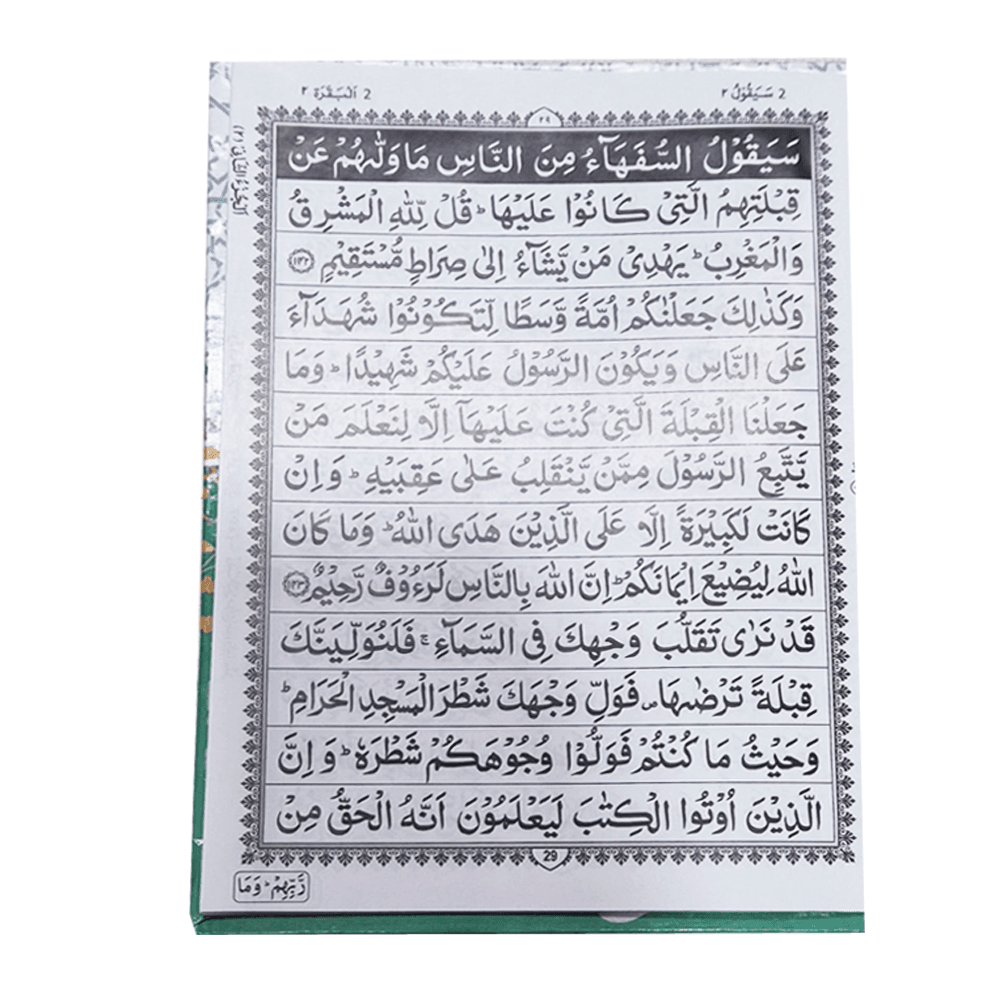 2 سَيَقُوْلُ ٢
2 اَلْبَقَرَة ٢
٢٩
سَيَقُوْلُ السُّفَهَآءُ مِنَ النَّاسِ مَا وَلّٰىهُمْ عَنْ
قِبْلَتِهِمُ الَّتِیْ كَانُوْا عَلَيْهَا ؕ قُلْ لِّلّٰهِ الْمَشْرِقُ
وَالْمَغْرِبُ ؕ يَهْدِیْ مَنْ يَّشَآءُ اِلٰی صِرَاطٍ مُّسْتَقِيْمٍ ﴿١٤٢﴾
وَكَذٰلِكَ جَعَلْنٰكُمْ اُمَّةً وَّسَطًا لِّتَكُوْنُوْا شُهَدَآءَ
عَلَی النَّاسِ وَيَكُوْنَ الرَّسُوْلُ عَلَيْكُمْ شَهِيْدًا ؕ وَمَا
جَعَلْنَا الْقِبْلَةَ الَّتِیْ كُنْتَ عَلَيْهَآ اِلَّا لِنَعْلَمَ مَنْ
يَّتَّبِعُ الرَّسُوْلَ مِمَّنْ يَّنْقَلِبُ عَلٰی عَقِبَيْهِ ؕ وَاِنْ
كَانَتْ لَكَبِيْرَةً اِلَّا عَلَی الَّذِيْنَ هَدَی اللّٰهُ ؕ وَمَا كَانَ
اللّٰهُ لِيُضِيْعَ اِيْمَانَكُمْ ؕ اِنَّ اللّٰهَ بِالنَّاسِ لَرَءُوْفٌ رَّحِيْمٌ ﴿١٤٣﴾
قَدْ نَرٰی تَقَلُّبَ وَجْهِكَ فِی السَّمَآءِ ۚ فَلَنُوَلِّيَنَّكَ
قِبْلَةً تَرْضٰىهَا ۪ فَوَلِّ وَجْهَكَ شَطْرَ الْمَسْجِدِ الْحَرَامِ ؕ
وَحَيْثُ مَا كُنْتُمْ فَوَلُّوْا وُجُوْهَكُمْ شَطْرَهٗ ؕ وَاِنَّ
الَّذِيْنَ اُوْتُوا الْكِتٰبَ لَيَعْلَمُوْنَ اَنَّهُ الْحَقُّ مِنْ
29
رَّبِّهِمْ ؕ وَمَا